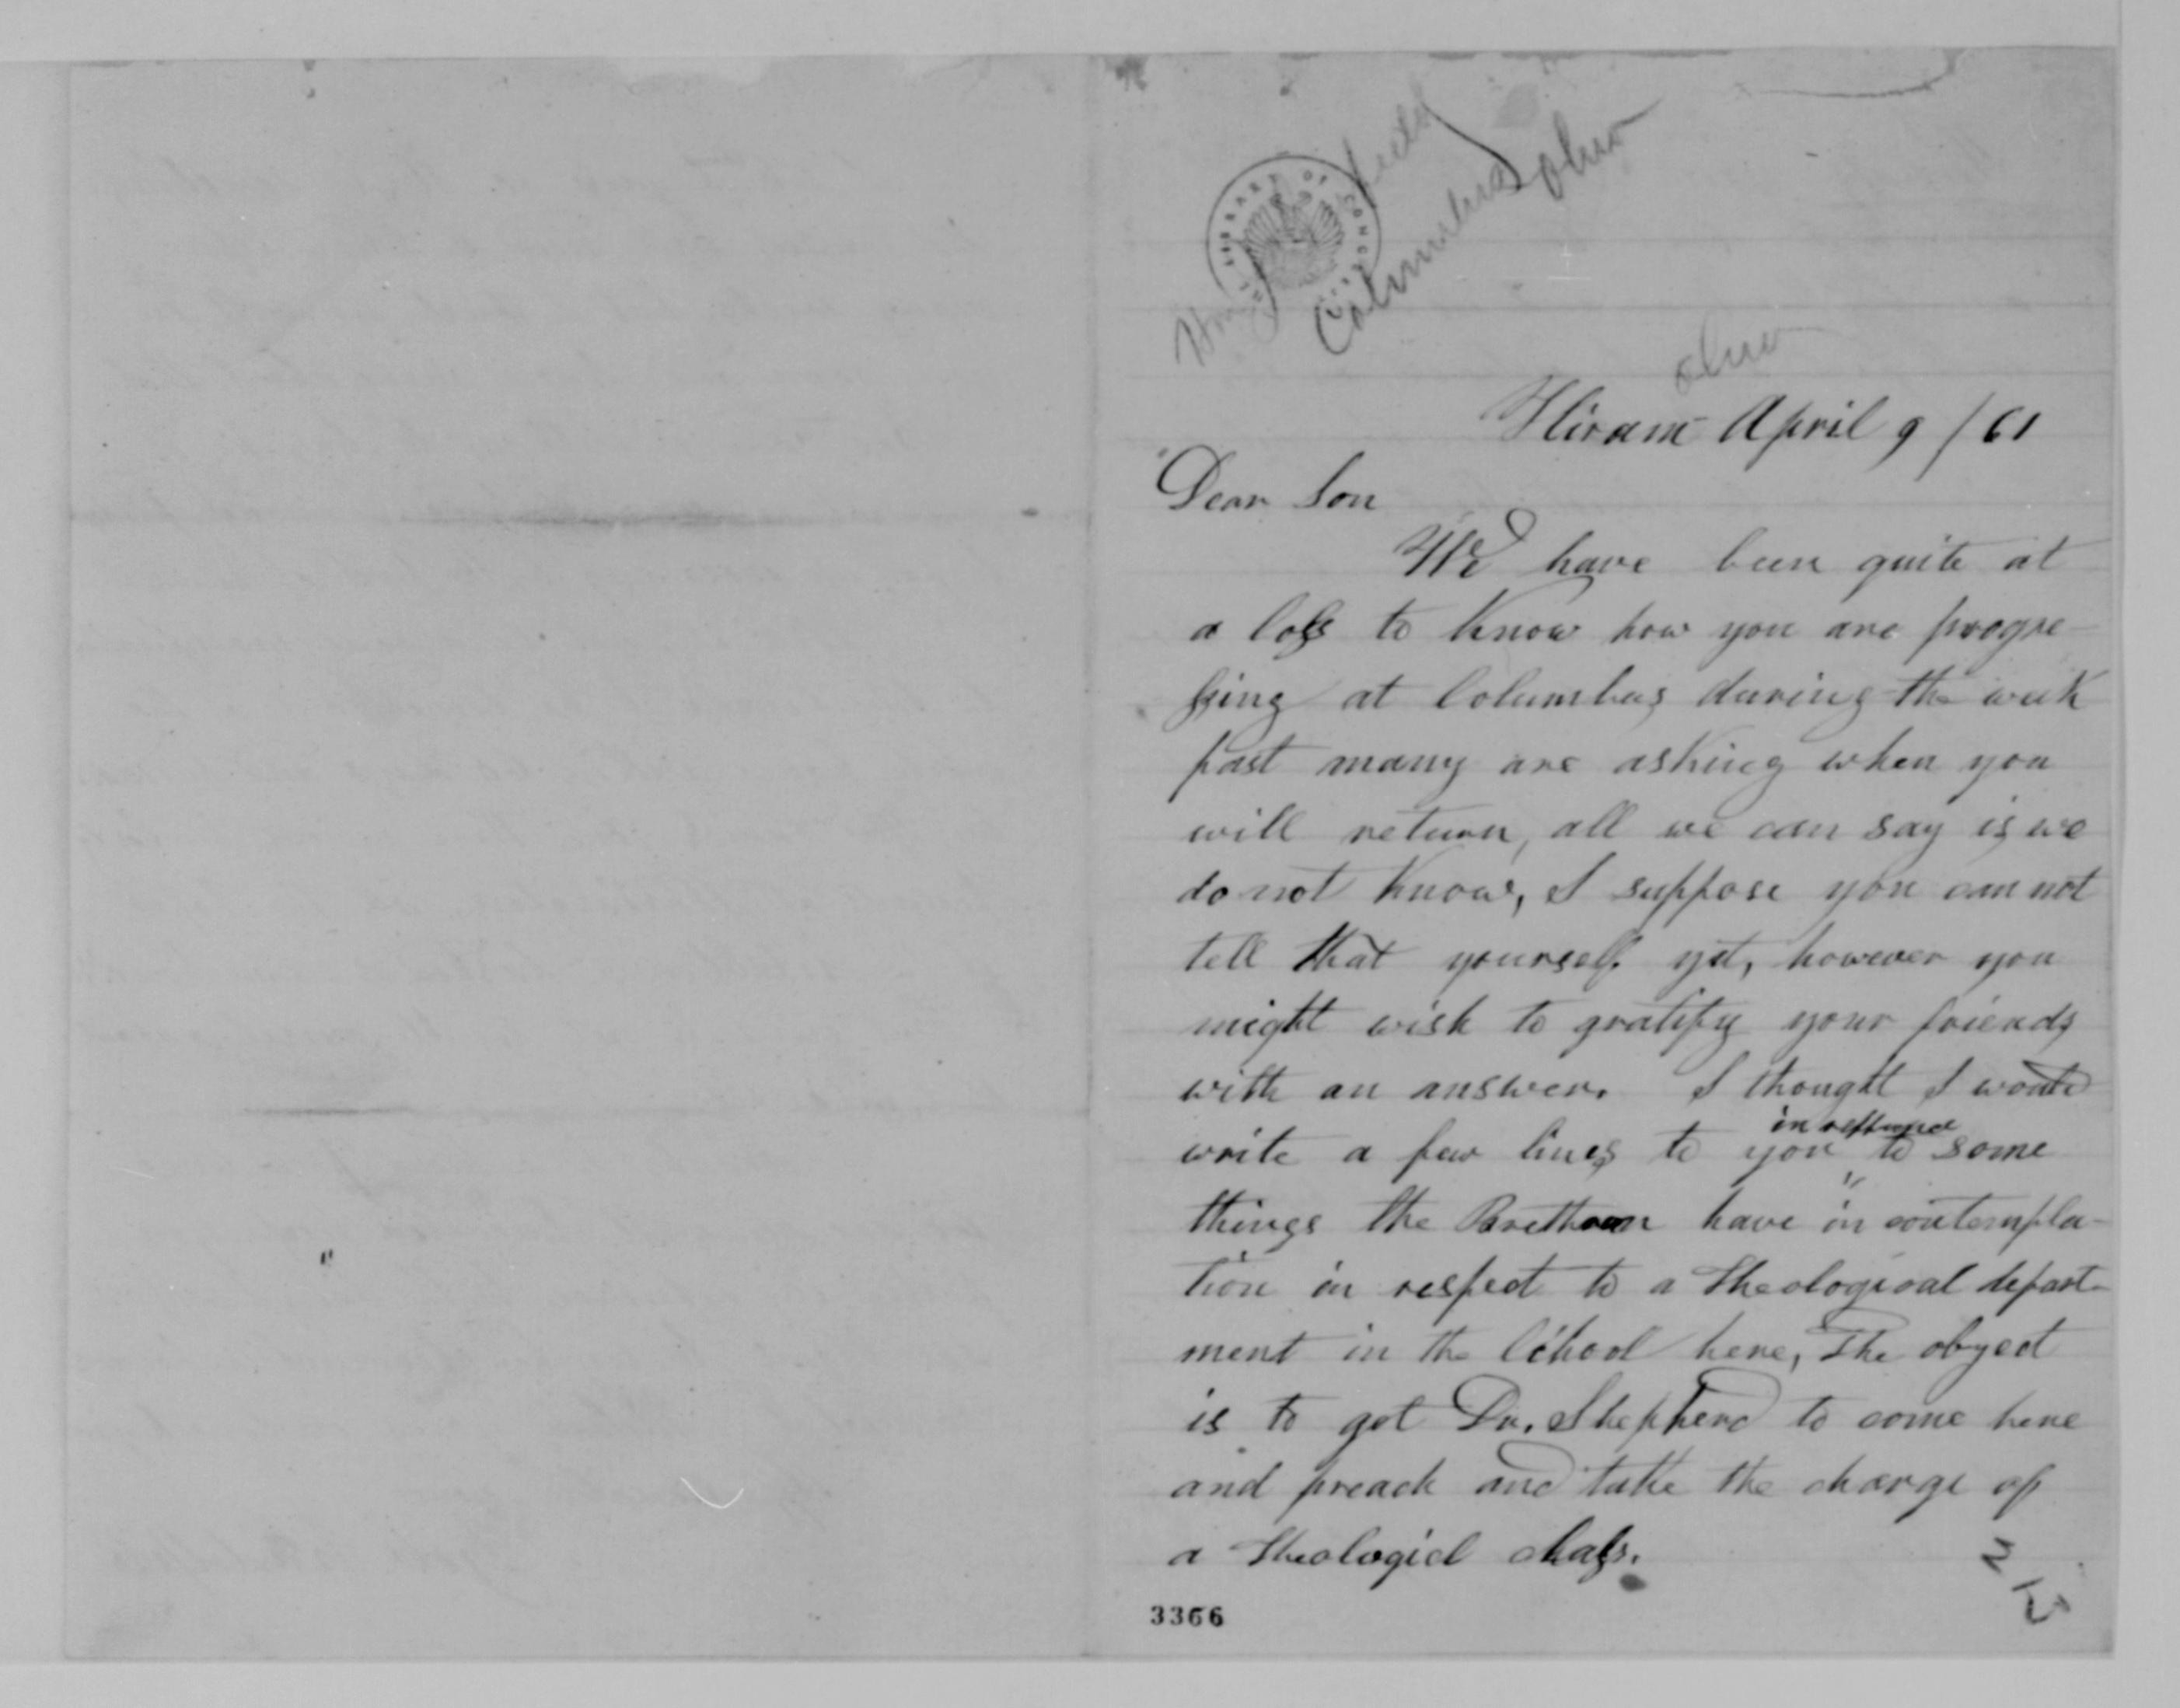 THE LIBRARY OF CONGRESS
Columbus Ohio
Ohio
Hiram April 9 / 61
Dear Son
We have been quite at
a loss to know how you are progre-
ssing at Columbus during the week
past many are asking when you
will return, all we can say is we
do not know, I suppose you can not
tell that yourself yet, however you
might wish to gratify your friends
with an answer. I thought I would
in refrence
write a few lines to you to some
things the Brethren have in contempla-
tion in respect to a Theological depart-
ment in the School here, The obyect
is to get Dr. Shepherd to come here
and preach and take the charge of
a Theologicl class.
3366